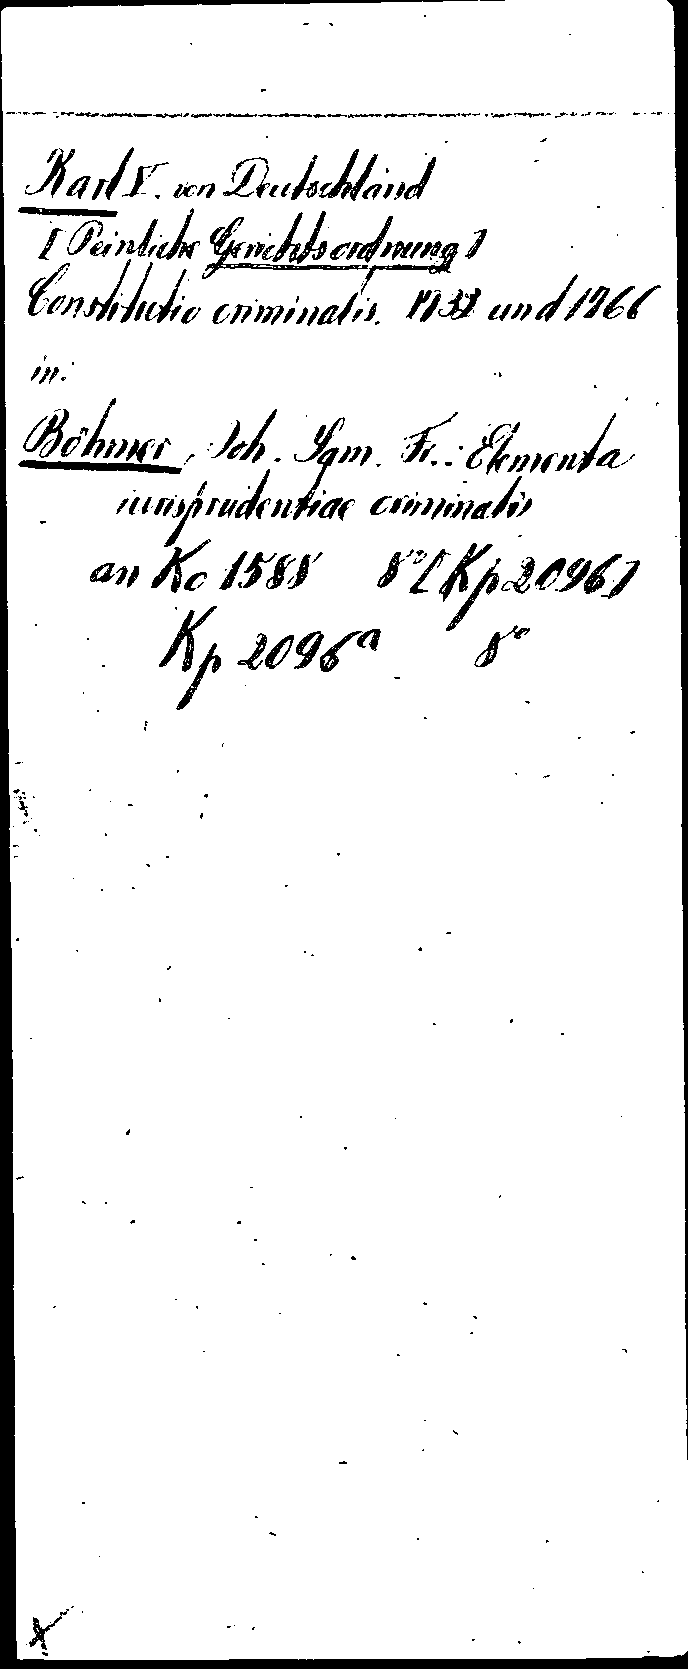 Karl V. von Deutschland
[Peinliche Gerichtsordnung]
Constitutio criminalis. und 1766
in:
Böhmer, Joh. Sam. Fr.: Elementa
iurisprudentiae criminalis
an Kc 1588 8° [Kp 2096]
Kp 2096a 8°